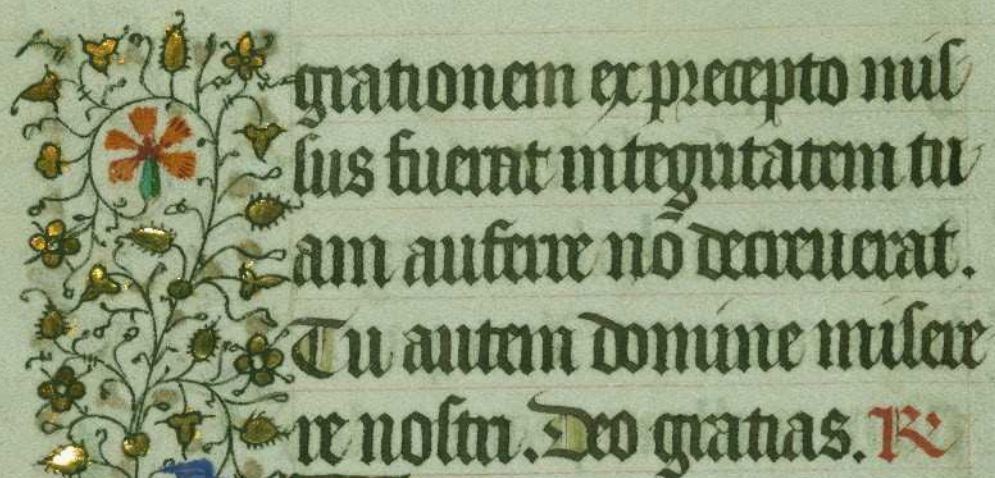 grationem ex precepto mis
sus fuerat integritatem tu
am auferre nō decreuerat.
Tu autem domine misere
re nostri. Deo gratias. R